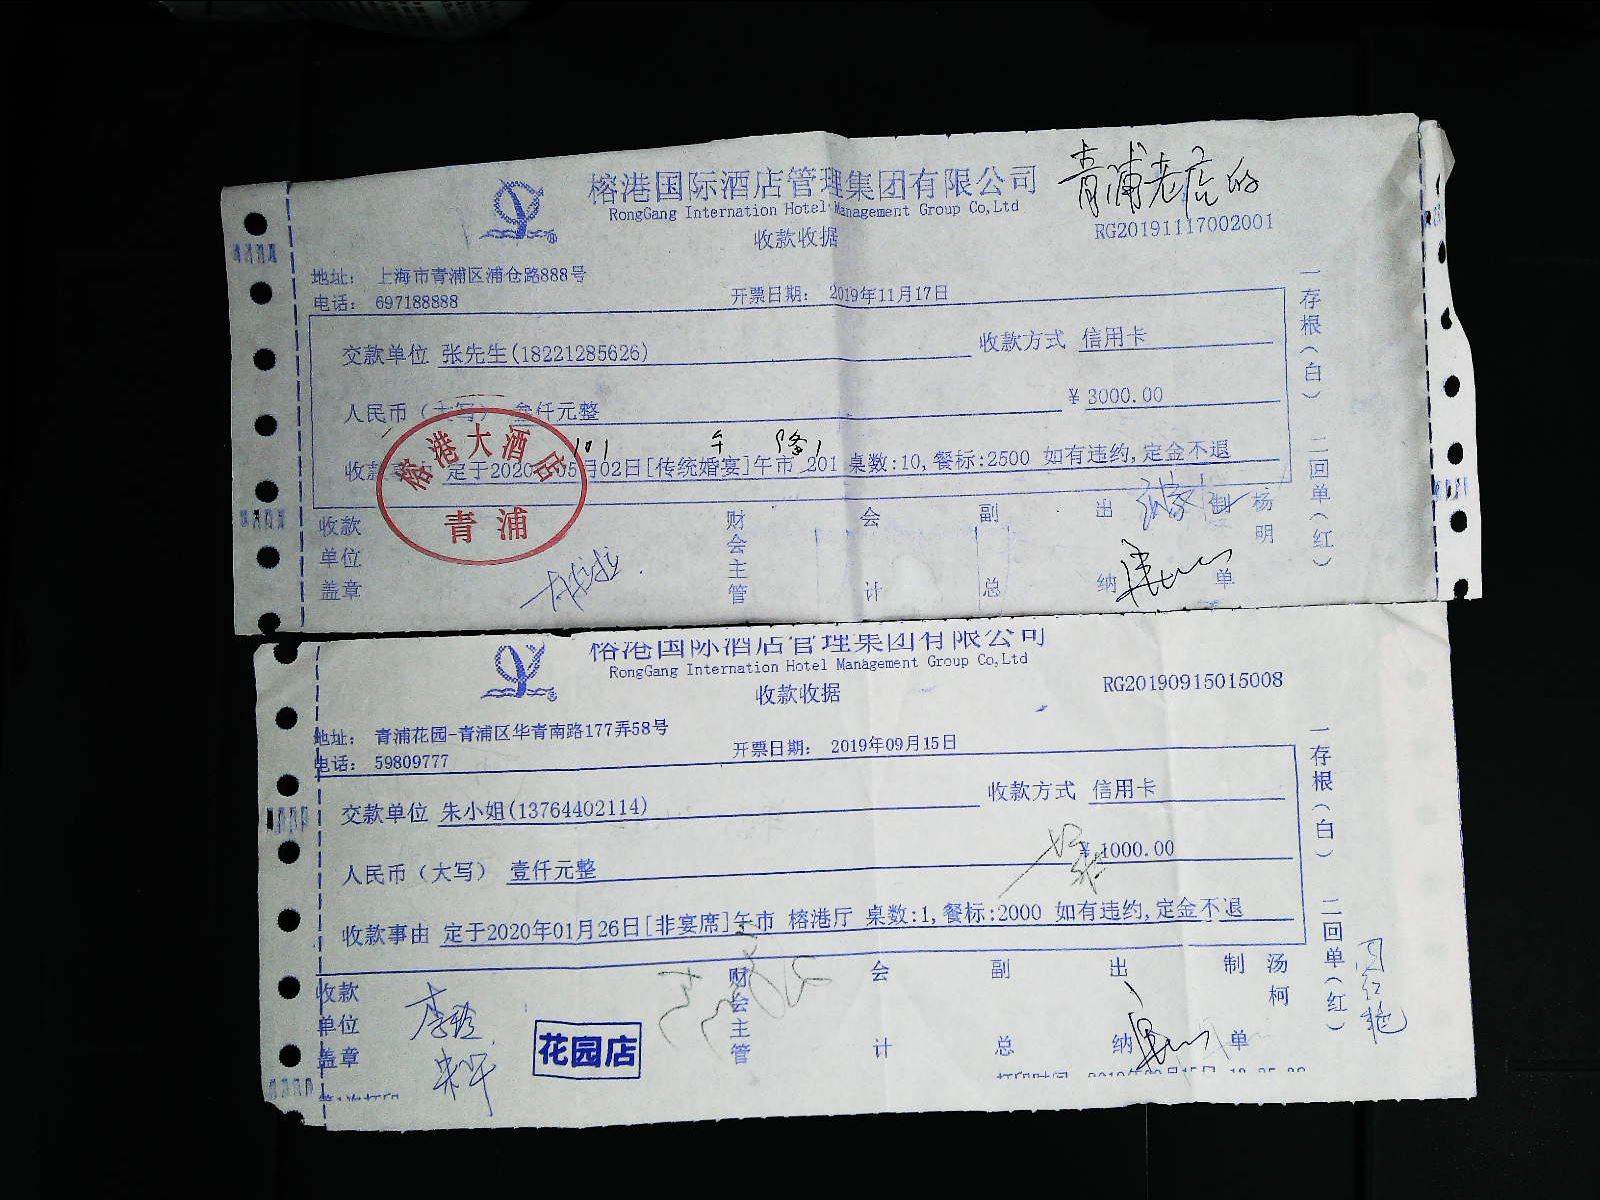 榕港国际酒店管理集团有限公司 青浦老店的
RongGang Internation Hotel Management Group Co,Ltd
收款收据 RG20191117002001
地址： 上海市青浦区浦仓路888号
电话： 697188888 开票日期： 2019年11月17日
交款单位 张先生(18221285626) 收款方式 信用卡
人民币（大写） 叁仟元整 ¥ 3000.00
收款 定于2020 05月02日[传统婚宴]午市 201 桌数:10,餐标:2500 如有违约,定金不退
榕港大酒店
青浦
收款单位盖章 财会主管 会计 副总 出纳 制单 杨明
一存根（白） 二回单（红）
榕港国际酒店管理集团有限公司
RongGang Internation Hotel Management Group Co,Ltd
收款收据 RG20190915015008
地址： 青浦花园-青浦区华青南路177弄58号
电话： 59809777 开票日期： 2019年09月15日
交款单位 朱小姐(13764402114) 收款方式 信用卡
人民币（大写） 壹仟元整 ¥ 1000.00
收款事由 定于2020年01月26日[非宴席]午市 榕港厅 桌数:1,餐标:2000 如有违约,定金不退
收款单位盖章 财会主管 会计 副总 出纳 制单 汤柯
花园店
一存根（白） 二回单（红）